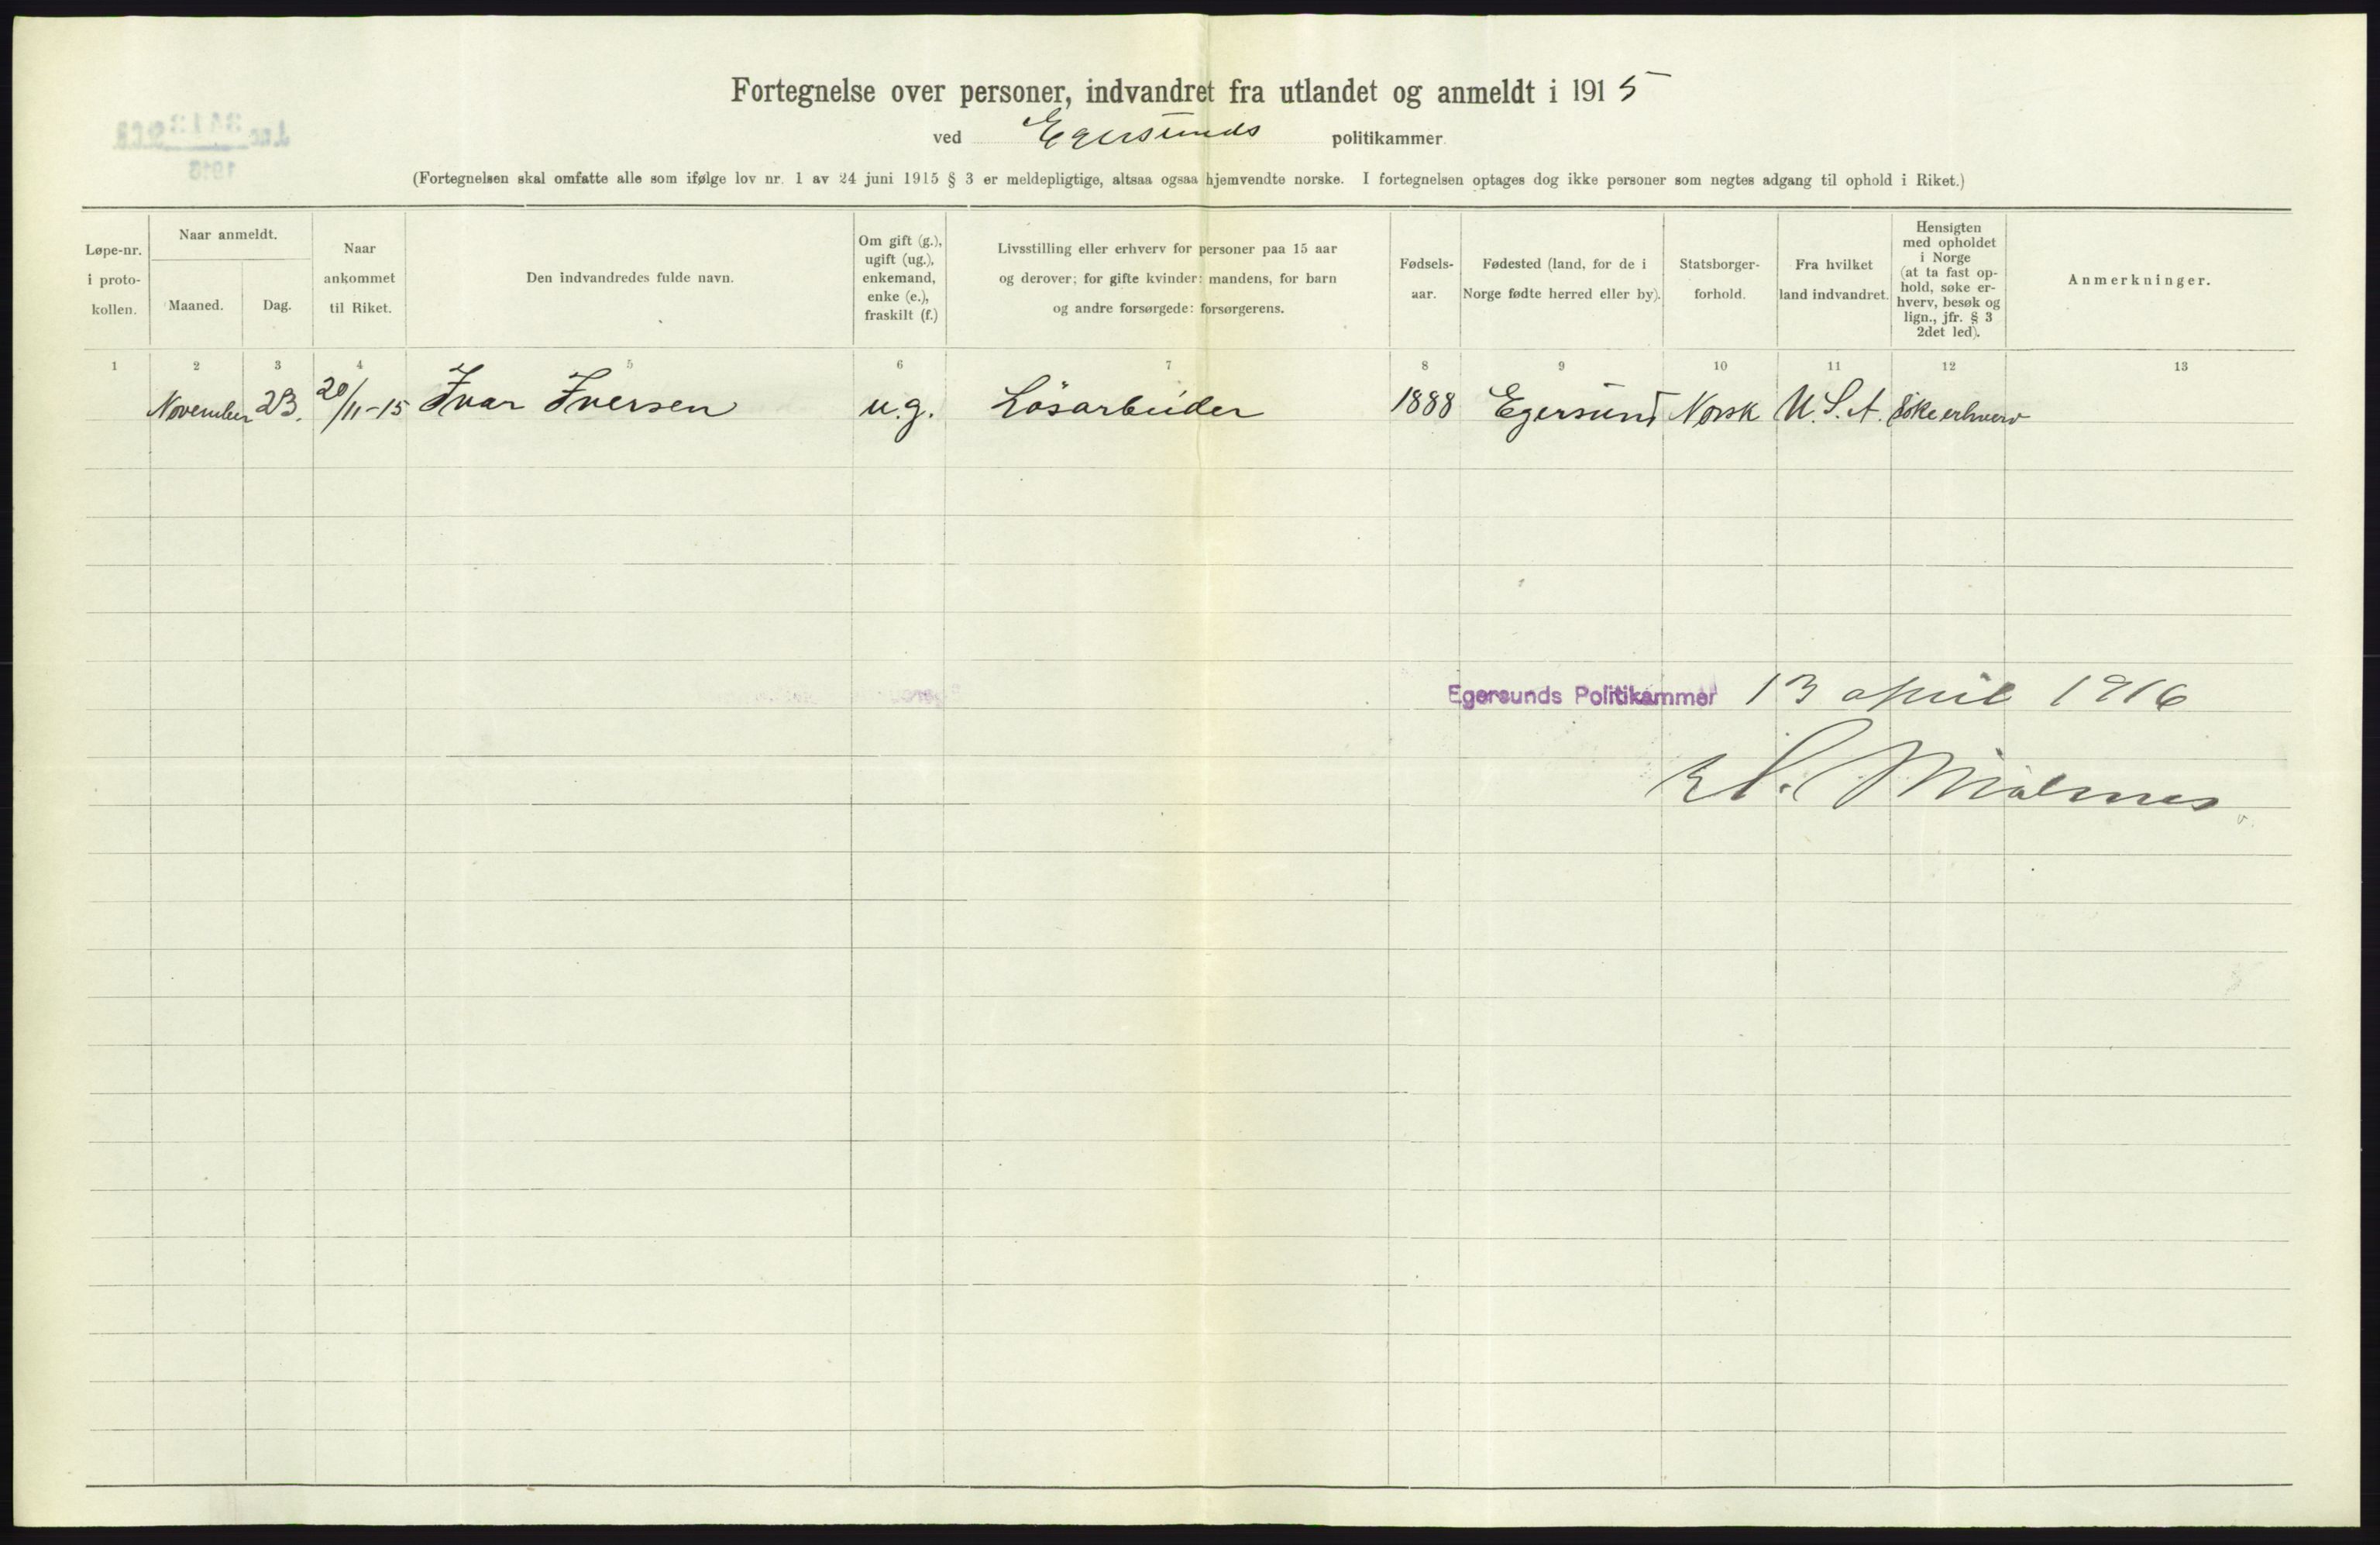 Fortegnelse over personer, indvandret fra utlandet og anmeldt i 1915
ved Egersunds politikammer
(Fortegnelsen skal omfatte alle som ifølge lov nr. 1 av 24 juni 1915 § 3 er meldepligtige, altsaa ogsaa hjemvendte norske. I fortegnelsen optages dog ikke personer som negtes adgang til ophold i Riket.)
Løpe-nr.
i proto-
kollen.
Naar anmeldt.
Maaned.
Dag.
Naar
ankommet
til Riket.
Den indvandredes fulde navn.
Om gift (g.),
ugift (ug.),
enkemand,
enke (e.),
fraskilt (f.)
Livsstilling eller erhverv for personer paa 15 aar
og derover; for gifte kvinder: mandens, for barn
og andre forsørgede: forsørgerens.
Fødsels-
aar.
Fødested (land, for de i
Norge fødte herred eller by).
Statsborger-
forhold.
Fra hvilket
land indvandret.
Hensigten
med opholdet
i Norge
(at ta fast op-
hold, søke er-
hverv, besøk og
lign., jfr. § 3
2det led).
Anmerkninger.
1 2 3 4 5 6 7 8 9 10 11 12 13
November 23. 20/11-15 Ivar Iversen u.g. Lösarbeider 1888 Egersund Norsk U.S.A. Söke erhverv
Egersunds Politikammer 13 april 1916